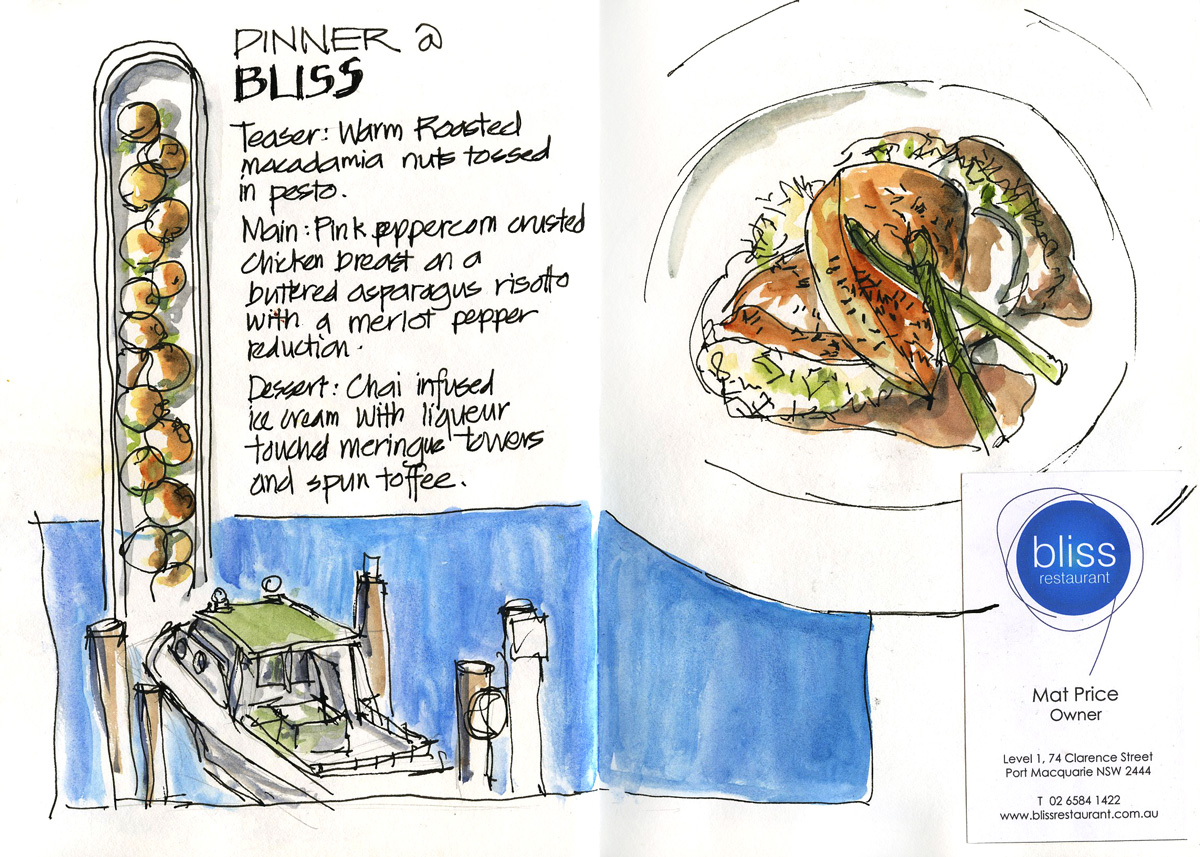 DINNER @
BLISS
Teaser: Warm Roasted
macadamia nuts tossed
in pesto.
Main: Pink peppercorn crusted
chicken breast on a
buttered asparagus risotto
with a merlot pepper
reduction.
Dessert: Chai infused
ice cream with liqueur
touched meringue towers
and spun toffee.
bliss
restaurant
Mat Price
Owner
Level 1, 74 Clarence Street
Port Macquarie NSW 2444
T 02 6584 1422
www.blissrestaurant.com.au